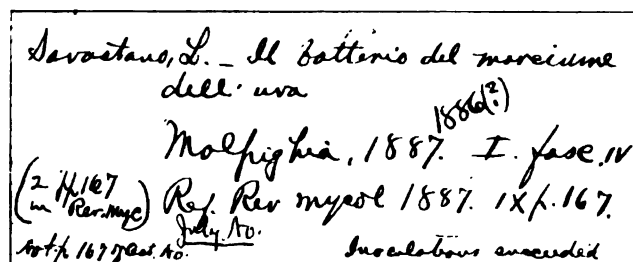 Savastano, L. – Il batterio del marciume
dell' uva
1886(?)
Malpighia, 1887. I. fasc. IV
(2 pp. 167
in Rev. Myc)
Ref. Rev mycol 1887. IX p. 167.
July. No.
Not p 167 of Oct. No.
Inoculations succeeded